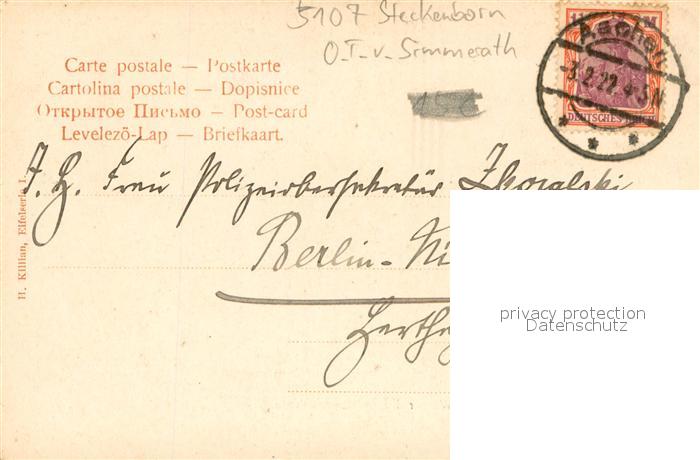 5107 Steckenborn
O.T. v. Simmerath
Carte postale — Postkarte
Cartolina postale — Dopisnice
Открытое Письмо — Post-card
Levelező-Lap — Briefkaart.
Aachen
-3.2.22. 4-5 N
DEUTSCHES REICH
Frau Polizeiobersekretär Zkowalski
Berlin-Ni
Herth
H. Killian, Eifelserie I.
privacy protection
Datenschutz